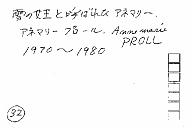 雪の女王と呼ばれた アネマリー.
アネマリー プロール. Annemarie
PROLL
1970〜1980
32